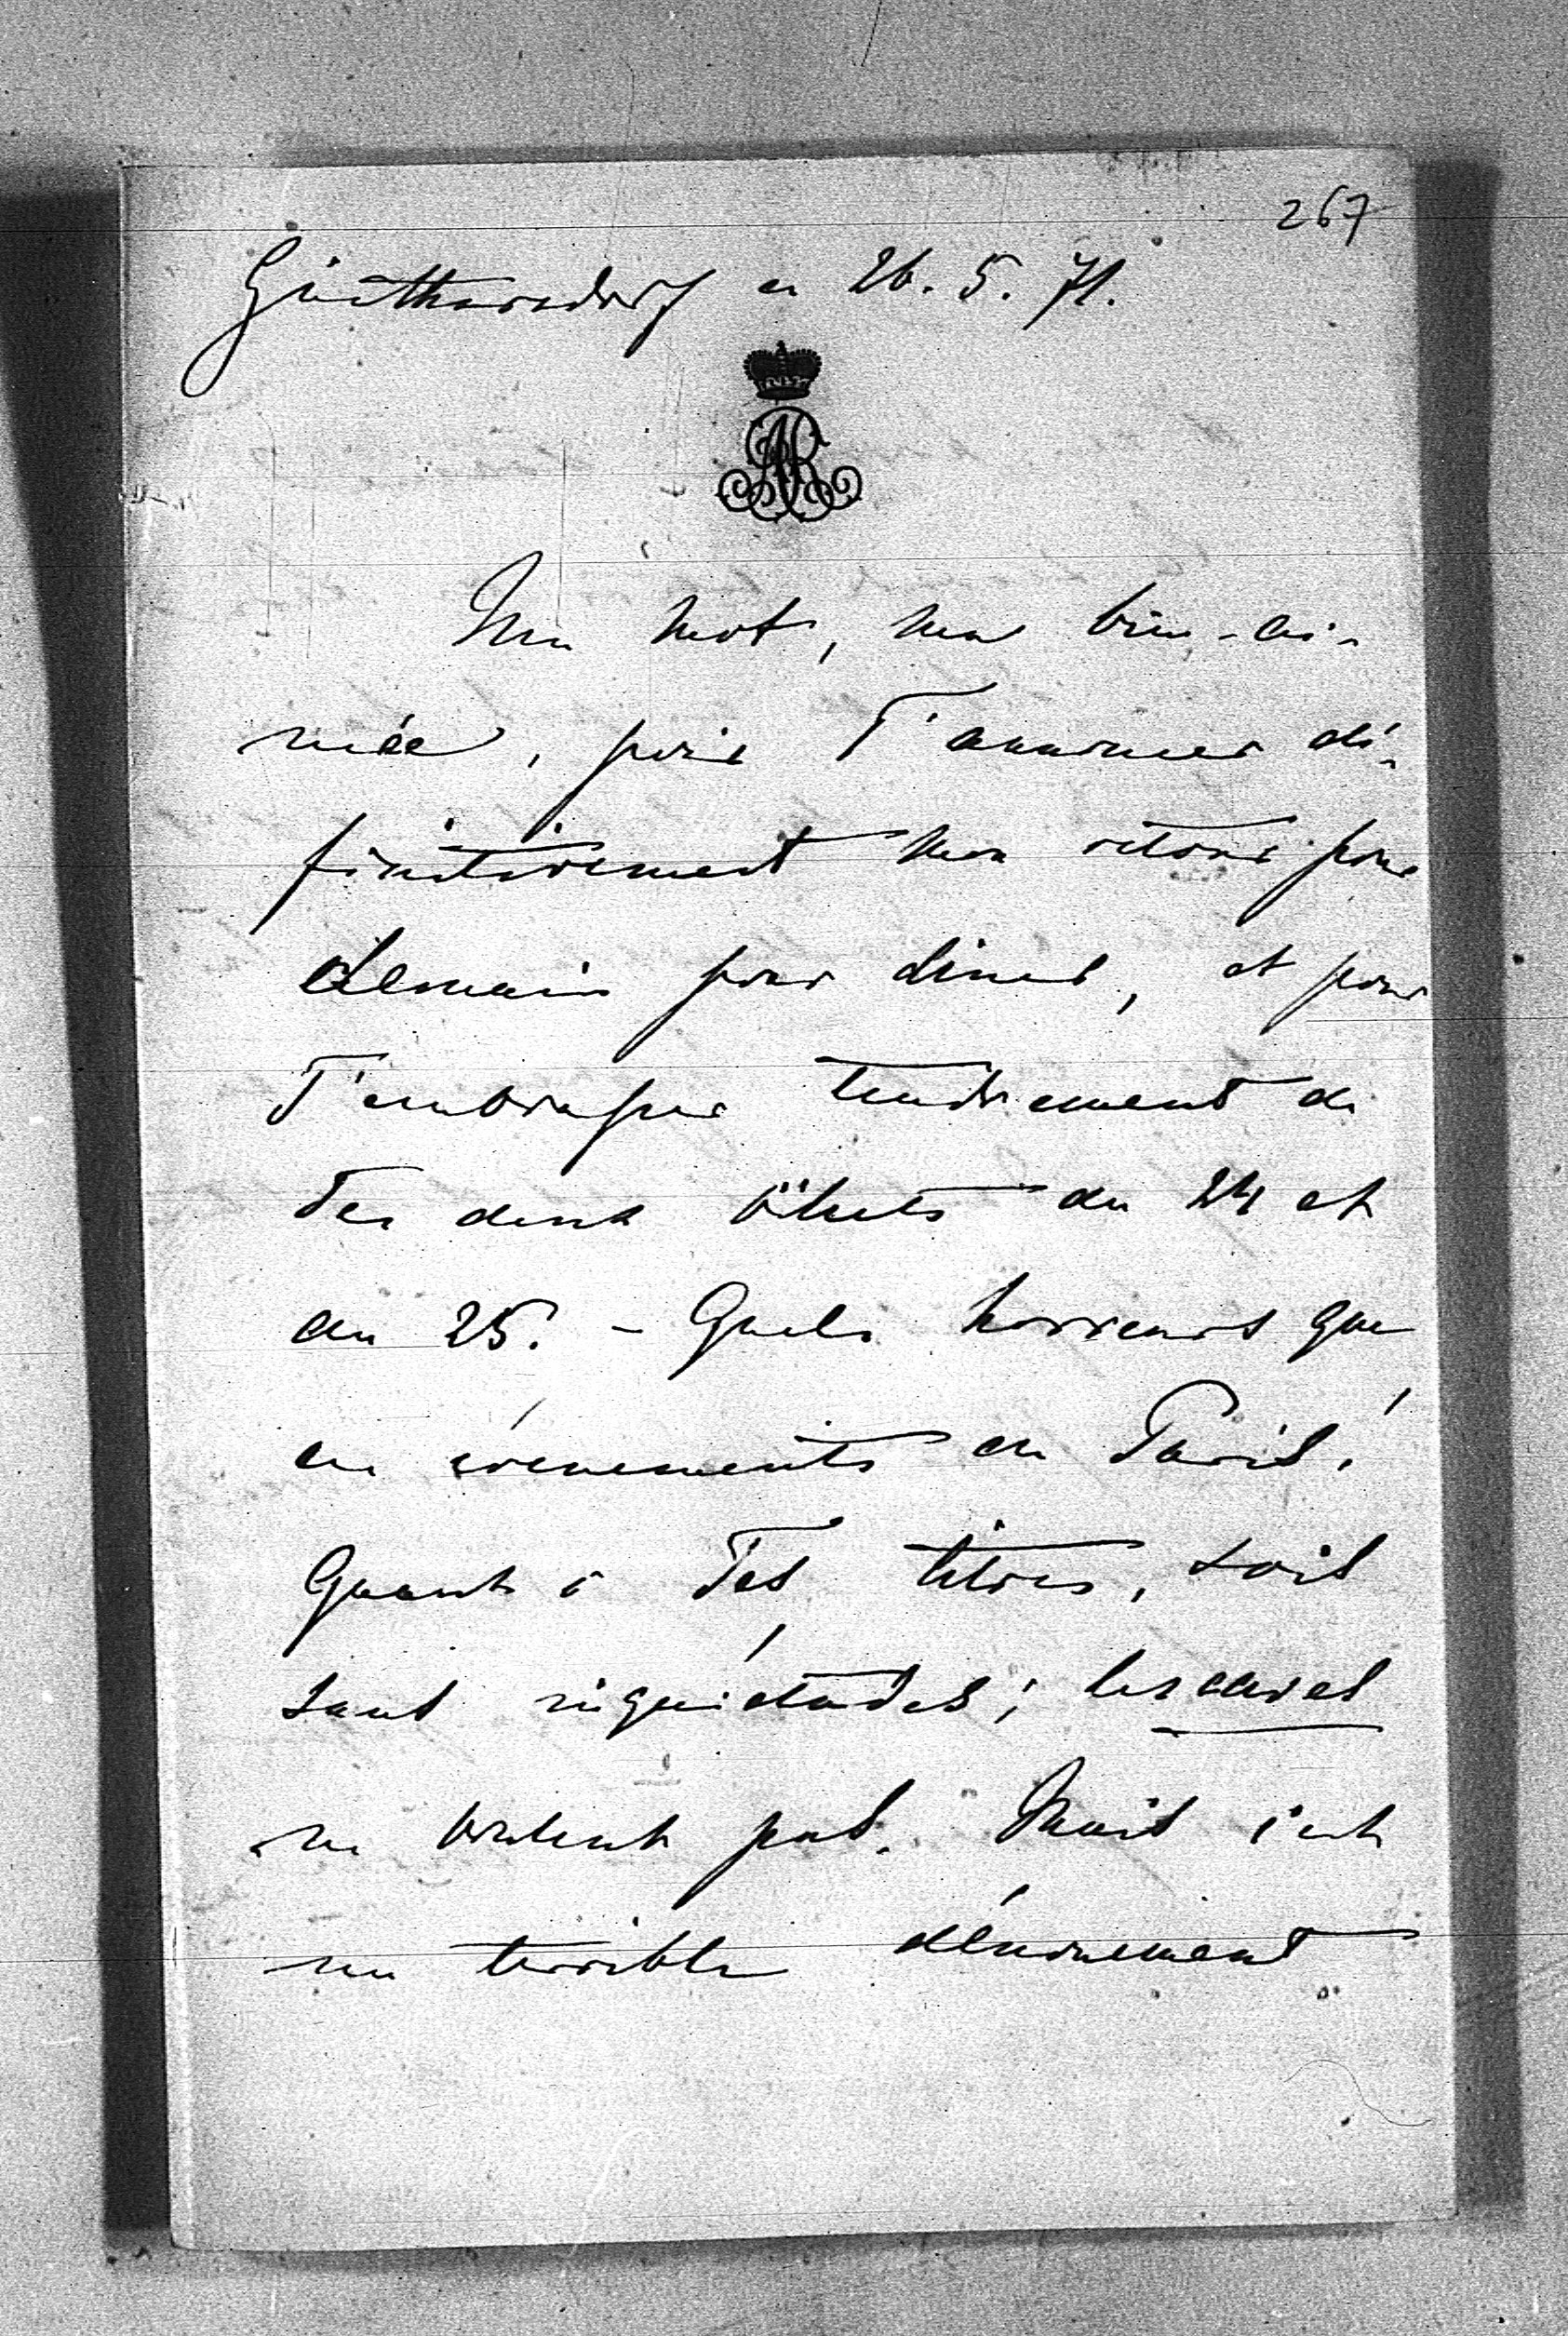 267
Günthersdorf ce 26. 5. 71.
Un mot, ma bien-ai-
mée, pour T'annoncer dé-
finitivement mon retour pour
demain pour diner, et pour
T'embrasser tendrement de
Tes deux billets du 24 et
du 25. – Quels horreurs que
ces évenements de Paris!
Quant à Tes titres, sois
sans inquiétudes; les caves
ne brulent pas. Mais c'est
un terrible dénouement